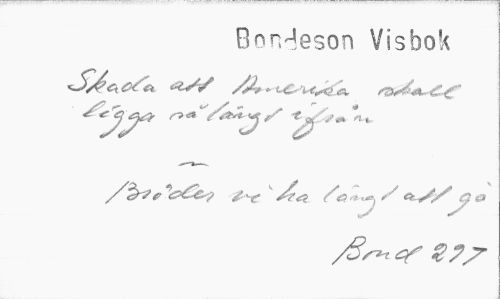 Bondeson Visbok
Skada att Amerika skall
ligga så långt ifrån
~
Bröder vi ha långt att gå
Bond 297